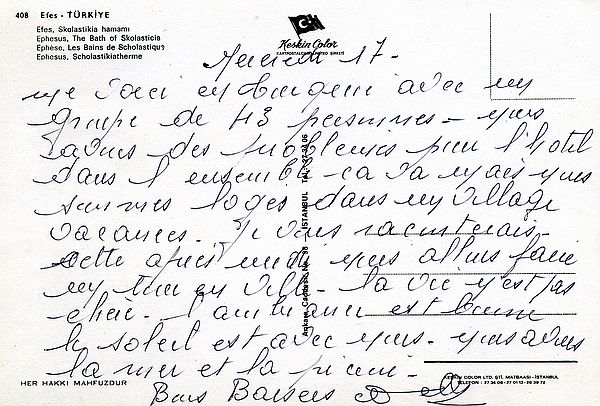 408 Efes - TÜRKİYE
Efes, Skolastikia hamamı
Ephesus, The Bath of Skolasticia
Ephèse, Les Bains de Scholastique
Ephesus, Scholastikiatherme
Keskin Color
KARTPOSTALCILIK LİMİTED ŞİRKETİ
Mercredi 17 -
me voici en Turquie avec un
groupe de 43 personnes - nous
avons des problèmes pour l'hôtel
dans l'ensemble ça va mais nous
sommes logés dans un village
vacances. Je vous raconterais -
cette après midi nous allons faire
un tour en ville - la vie n'est pas
chère. l'ambiance est bonne
le soleil est avec nous - nous avons
la mer et la piscine -
Bons Baisers
Ankara Caddesi No. 98 - İSTANBUL
HER HAKKI MAHFUZDUR
KESKİN COLOR LTD. ŞTİ. MATBAASI - İSTANBUL